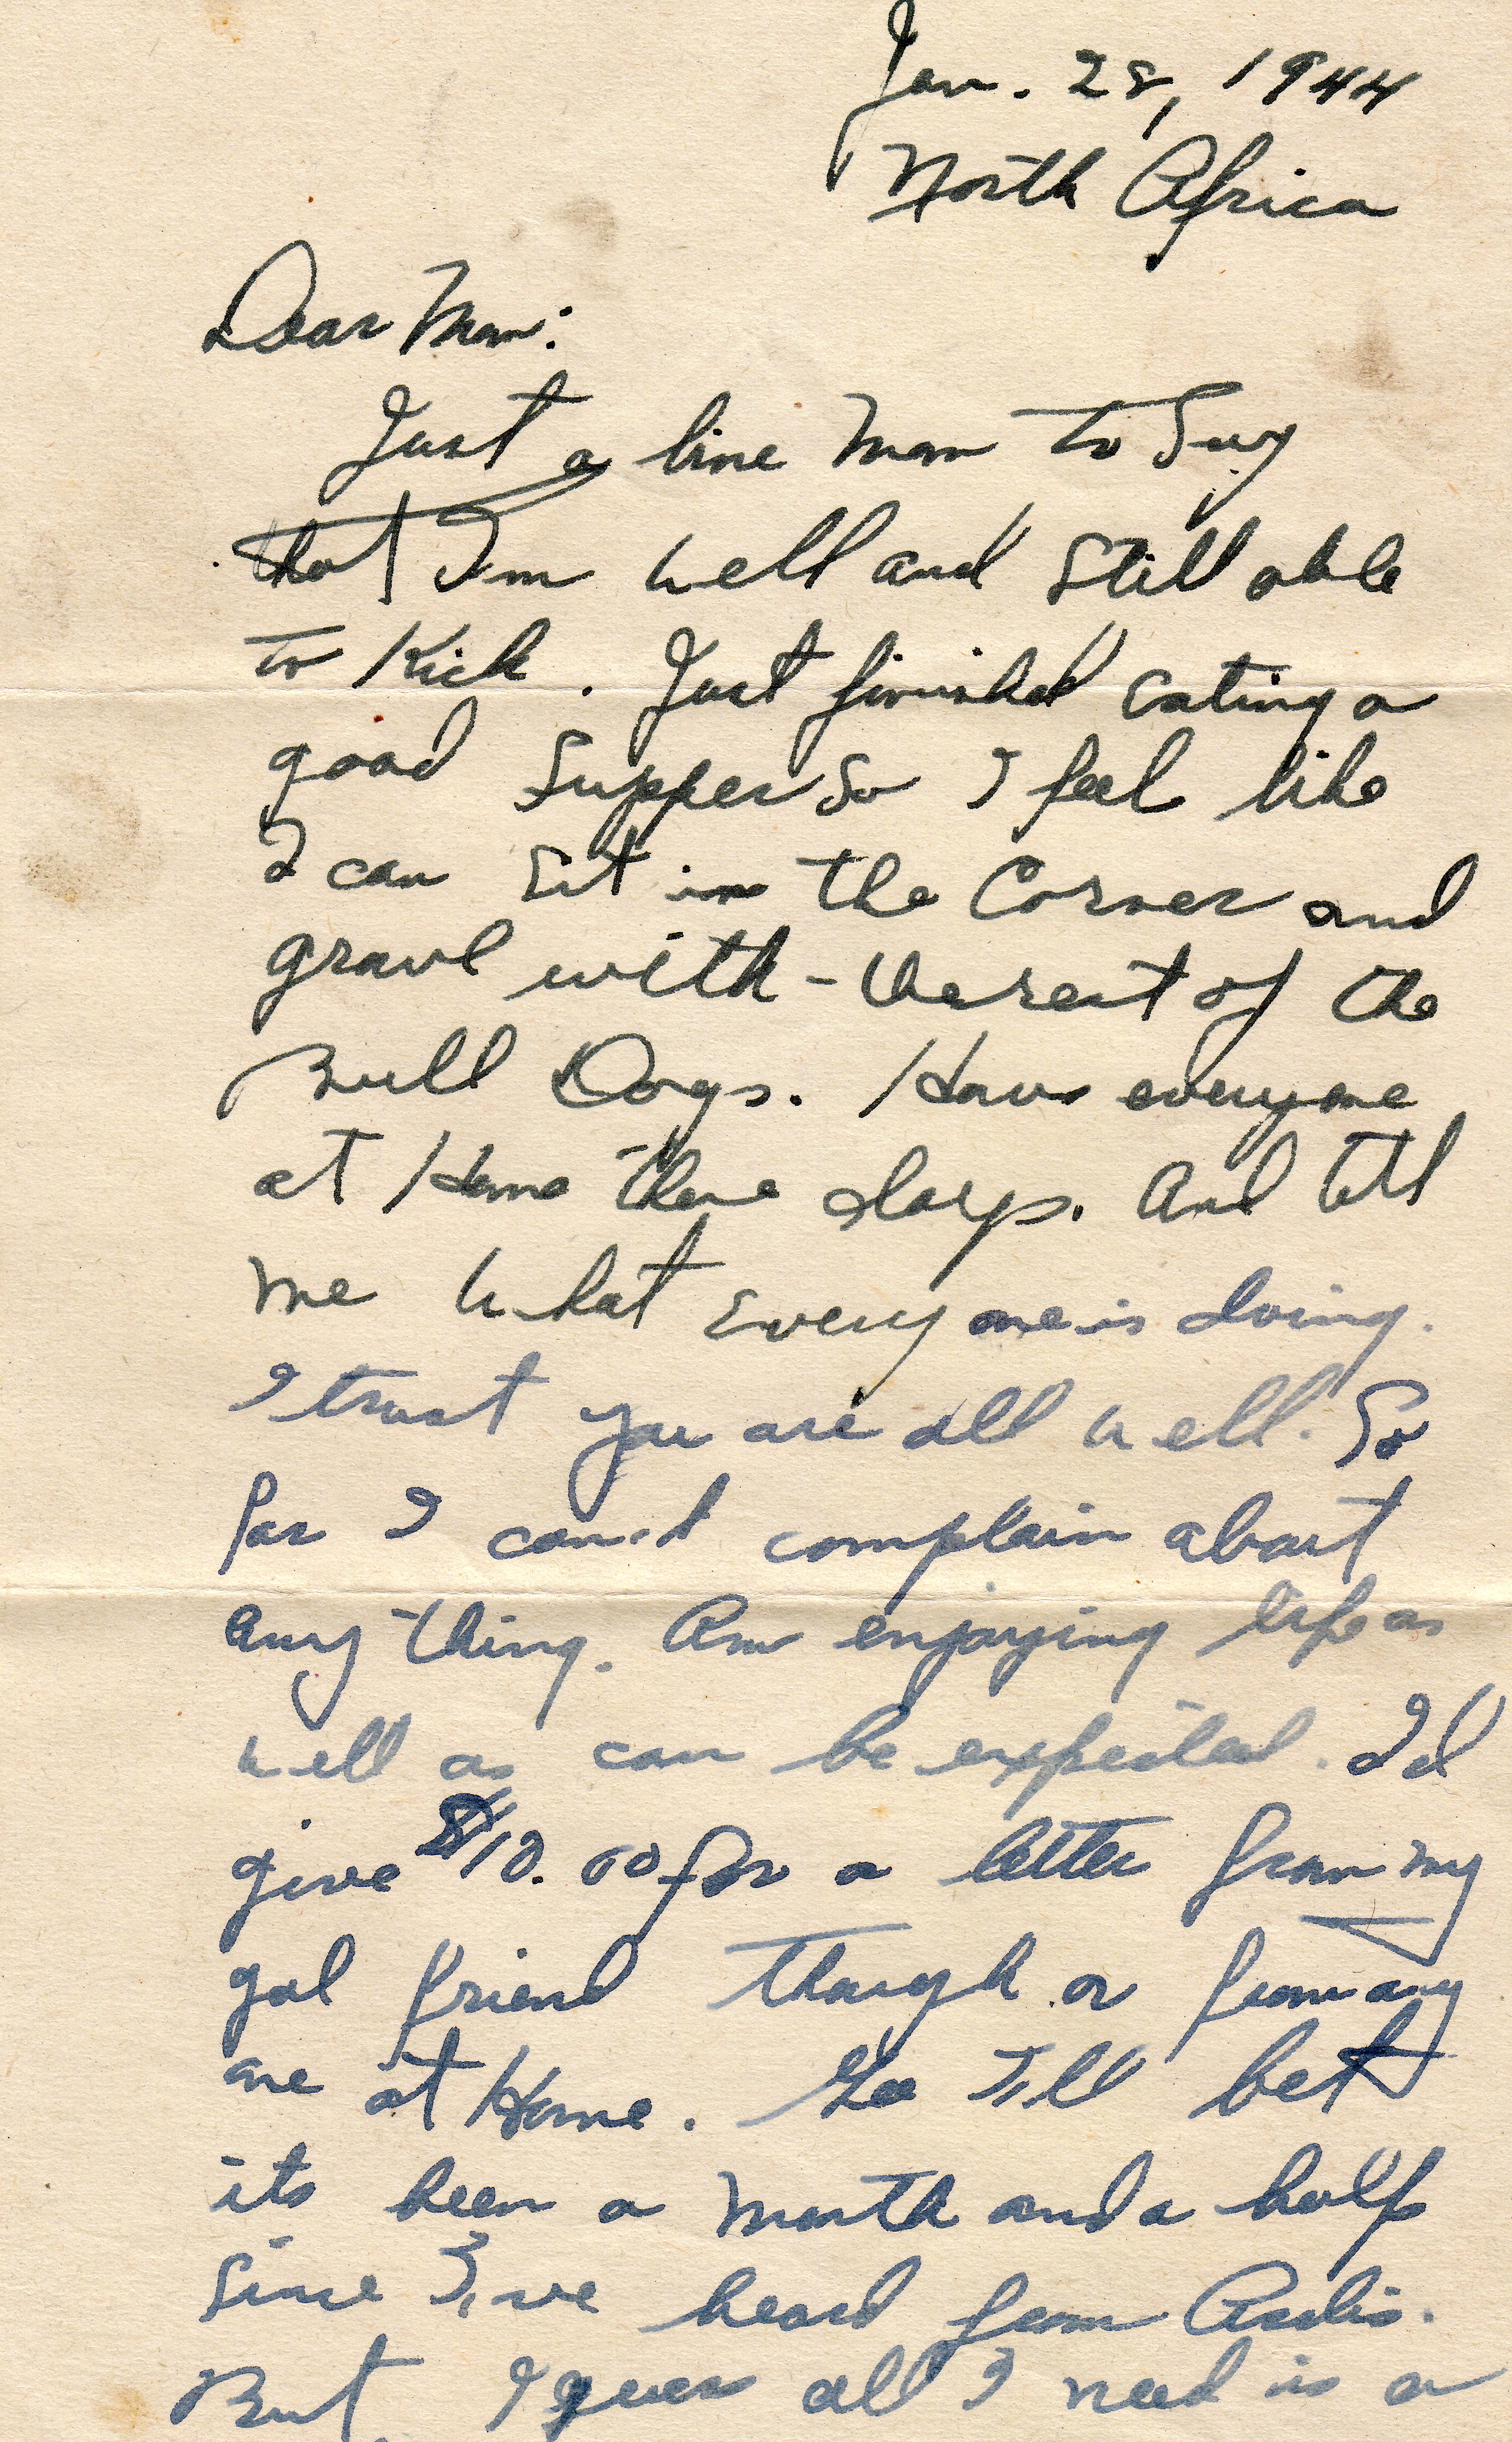 Jan. 28, 1944
North Africa
Dear Mom:
Just a line Mom to Say
that I'm well and Still able
to Kick. Just finished eating a
good Supper So I feel like
I can Sit in the Corner and
growl with - the rest of the
Bull Dogs. How's everyone
at Home these days. And tell
me What Every one is doing.
I trust you are all well. So
far I can't complain about
any thing. Am enjoying life as
well as can be expected. I'd
give $10.00 for a letter from my
gal friend though or from any
one at Home. Gee I'll bet
its been a Month and a half
Since I've heard from
But I guess all I need is a